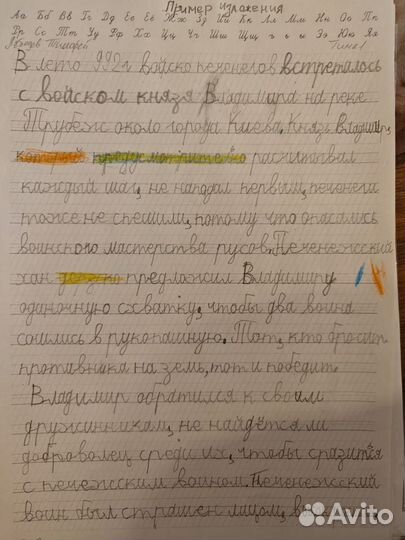 Пример изложения
Аа Бб Вв Гг Дд Ее Ёё Жж Зз Ии Йй Кк Лл Мм Нн Оо Пп
Рр Сс Тт Уу Фф Хх Цц Чч Шш Щщ ъ ы ь Ээ Юю Яя
Тимофей
В лето 992г войско печенегов встретилось
с войском князя Владимира на реке
Трубеж около города Киева. Князь Владимир,
который предусмотрительно расчитывал
каждый шаг, не нападал первым, печенеги
тоже не спешили, потому что опасались
воинского мастерства русов. Печенежский
хан предложил Владимиру
одиночную схватку, чтобы два воина
сошлись в рукопашную. Тот, кто бросит
противника на земь, тот и победит.
Владимир обратился к своим
дружинникам, не найдётся ли
доброволец среди их, чтобы сразится
с печежским воином. Печенежский
воин был страшен лицом,
Avito